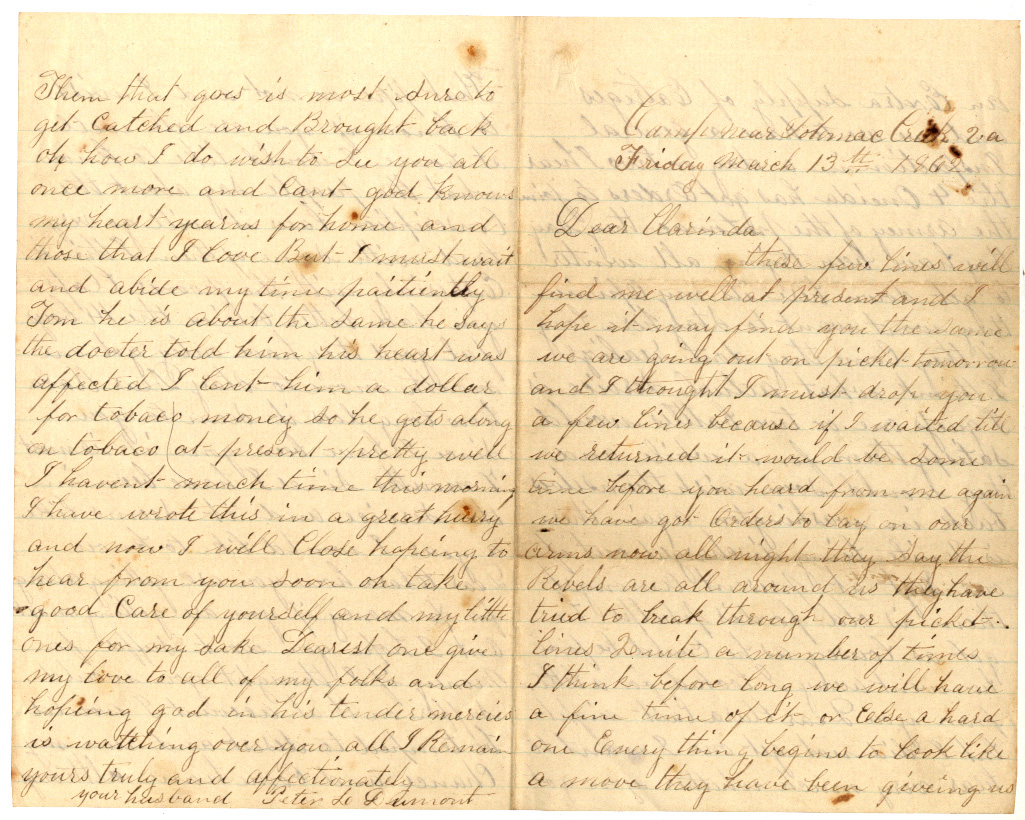 Camp near Potomac Creek Va
Friday March 13th 1863
Dear Clarinda
these few lines will
find me well at present and I
hope it may find you the same
we are going out on picket tomorrow
and I thought I must drop you
a few lines because if I waited till
we returned it would be some
time before you heard from me again
we have got Orders to Lay on our
arms now all night they say the
Revels are all around us they have
tried to break through our picket
lines Quite a number of times
I think before long we will have
a fine time of it or Else a hard
one Every thing begins to look like
a move they have been giveing us
Them that goes is most sure to
get Catched and Brought back
oh how I do wish to See you all
once more and Cant god knows
my heart yearns for home and
those that I love But I must wait
and abide my time paitiently
Tom he is about the same he says
the docter told him his heart was
affected I lent him a dollar
for tobaco money so he gets along
on tobaco at present pretty well
I havent much time this morning
I have wrote this in a great hurry
and now I will Close hopeing to
hear from you soon oh take
good Care of yourself and my little
ones for my sake Dearest one give
my love to all of my folks and
hopeing god in his tender mercies
is watching over you all I Remain
yours truly and affectionately
your husband Peter L Dumont